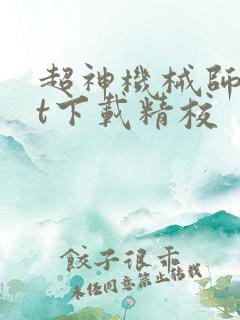 超神機械師
t下載精校
餃子很乖
未任同意禁止轉載